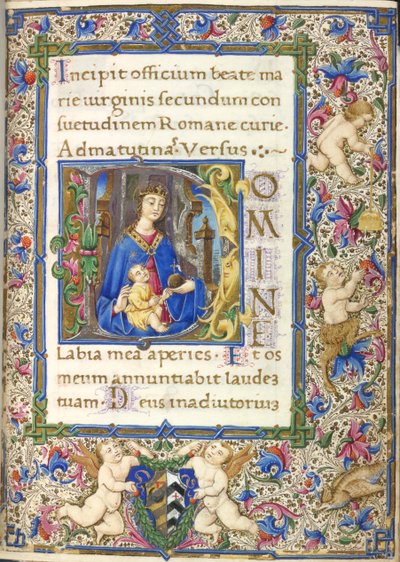 Incipit officium beate ma
rie uirginis secundum con
suetudinem Romane curie.
Ad matutinas Versus
DOMINE
Labia mea aperies. Et os
meum annuntiabit laudez
tuam. Deus in adiutoriuz